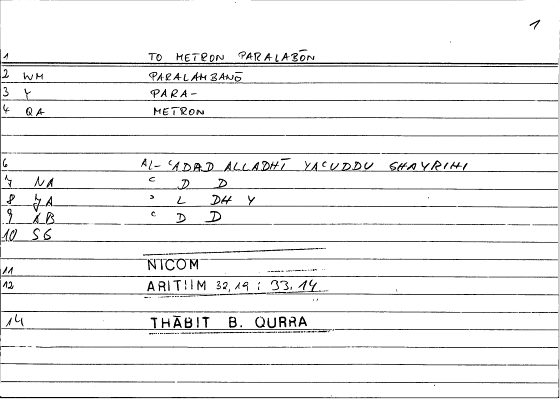 1
1 TO METRON PARALABŌN
2 WM PARALAMBANŌ
3 Y PARA-
4 QA METRON
6 AL-ʿADAD ALLADHĪ YAʿUDDU GHAYRIHI
7 NA ʿ D D
8 JA ʾ L DH Y
9 AB ʿ D D
10 SG
11 NICOM
12 ARITHM 32,19 : 33,14
14 THĀBIT B. QURRA